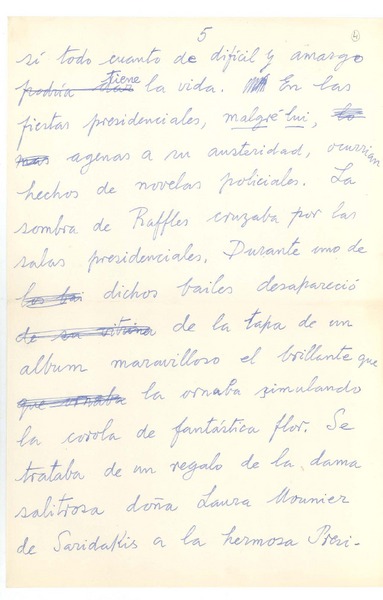 5
4
sí todo cuanto de difícil y amargo
podría dar tiene la vida. En las
fiestas presidenciales, malgré lui,
agenas a su austeridad, ocurrían
hechos de novelas policiales. La
sombra de Raffles cruzaba por las
salas presidenciales. Durante uno de
dichos bailes desapareció
de su vitrina de la tapa de un
album maravilloso el brillante que
que ornaba la ornaba simulando
la corola de fantástica flor. Se
trataba de un regalo de la dama
salitrosa doña Laura Mounier
de Saridakis a la hermosa Presi-